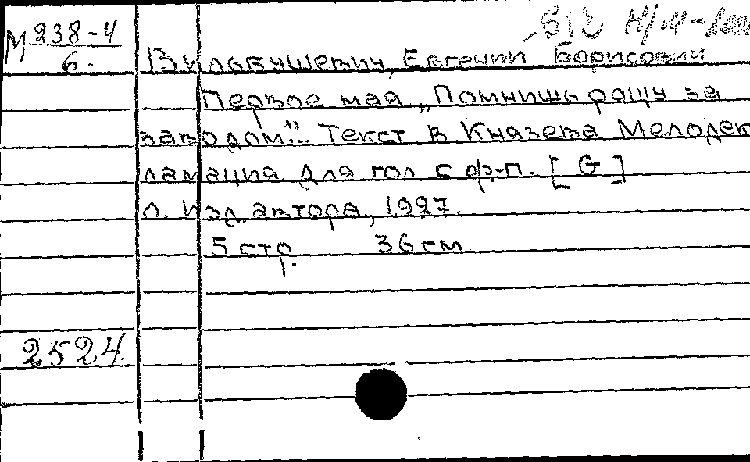 М 238-4
6.
Вилабушевич, Евгений Борисович
Первое мая „Помнишь рощу за
заводом"... Текст В Князева Мелодек
ламация для гол с ф-п. [G]
Л. Изд. автора, 1927.
5 стр. 36 см
2524